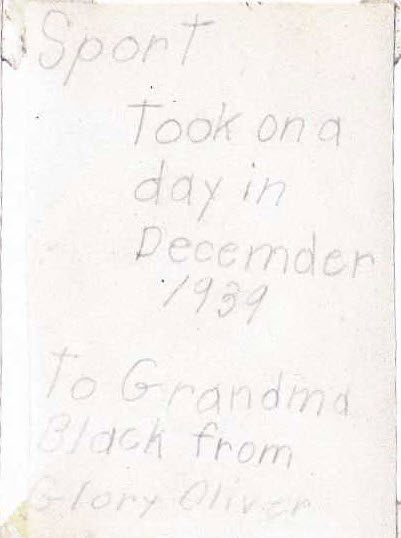 Sport
Took on a
day in
Decemder
1939
To Grandma
Black from
Glory Oliver